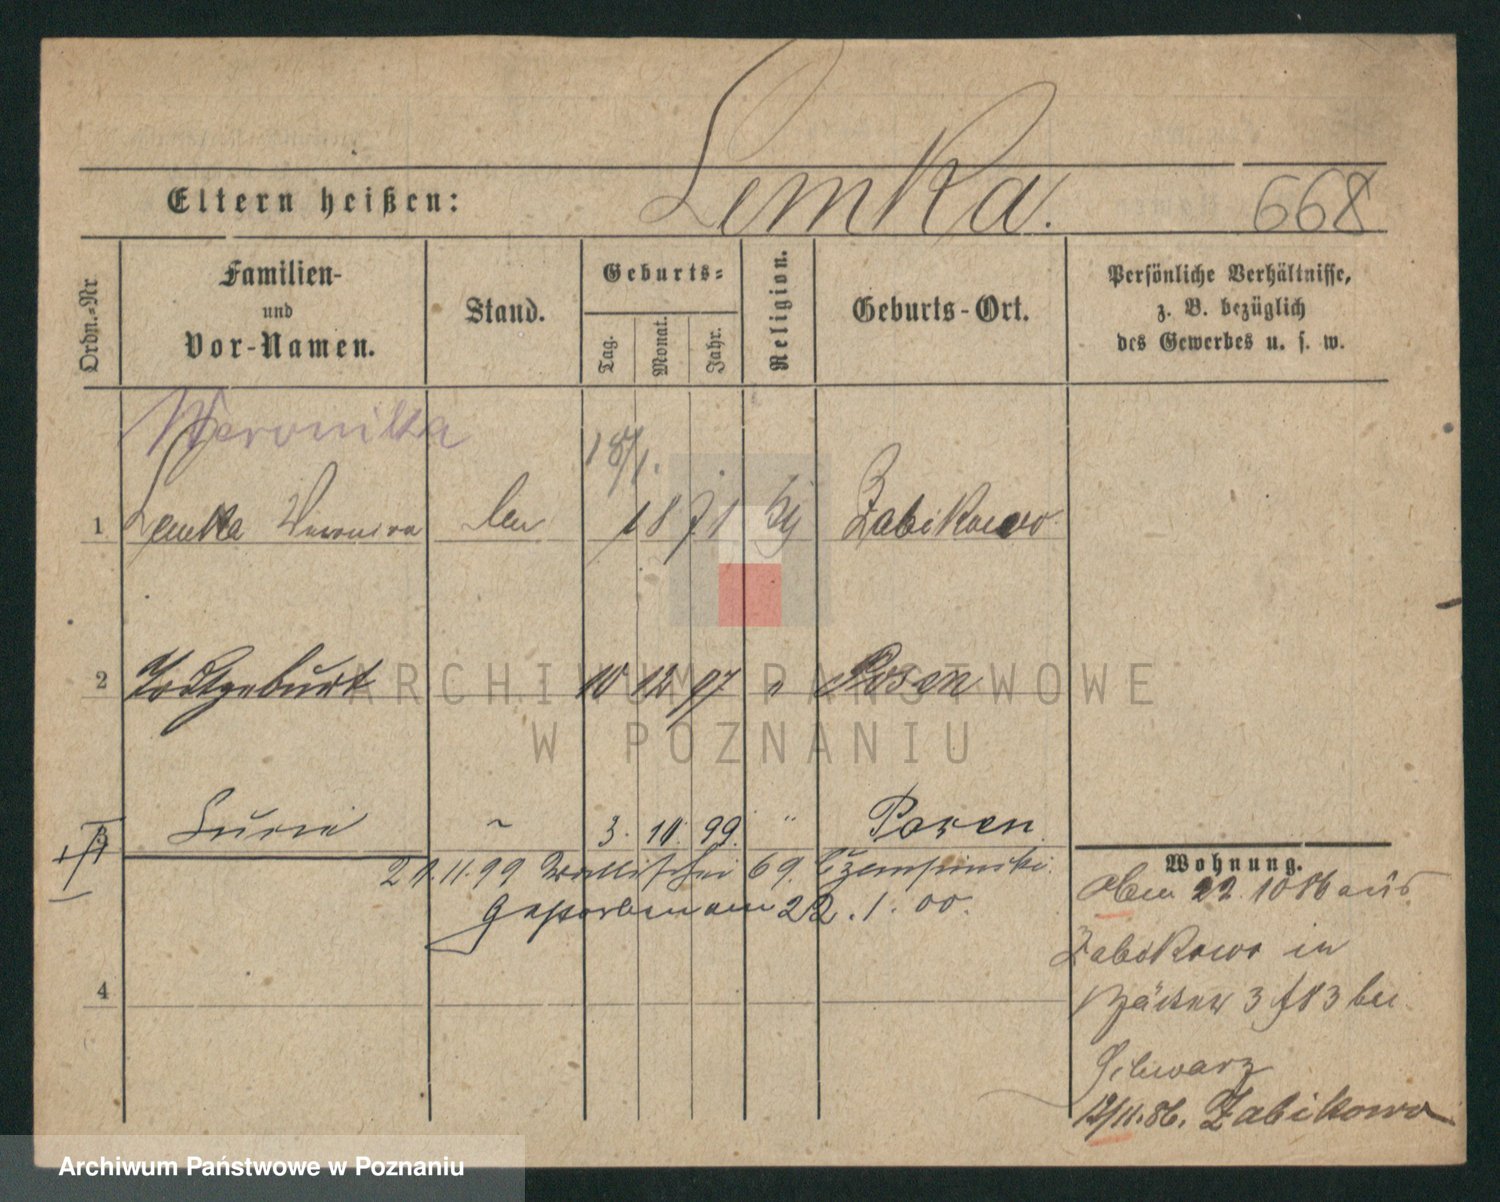 Lemka. 668
Eltern heißen:
Ordn.-Nr
Familien-
und
Vor-Namen.
Stand.
Geburts-
Tag.
Monat.
Jahr.
Religion.
Geburts-Ort.
Persönliche Verhältnisse,
z. B. bezüglich
des Gewerbes u. s. w.
Weronika
18/1.
1 Lemka Veronica 1871 Zabikowo
2 Todtgeburt 10 12 97 " Posen
3 3. 10. 99. " Posen
Wohnung.
21.11.99 Wallischei 69.
Gestorben am 22.1.00.
22.10 86 aus
Zabikowo in
4
3 bei
Schwarz
12/11.86. Zabikowo
ARCHIWUM PAŃSTWOWE
W POZNANIU
Archiwum Państwowe w Poznaniu